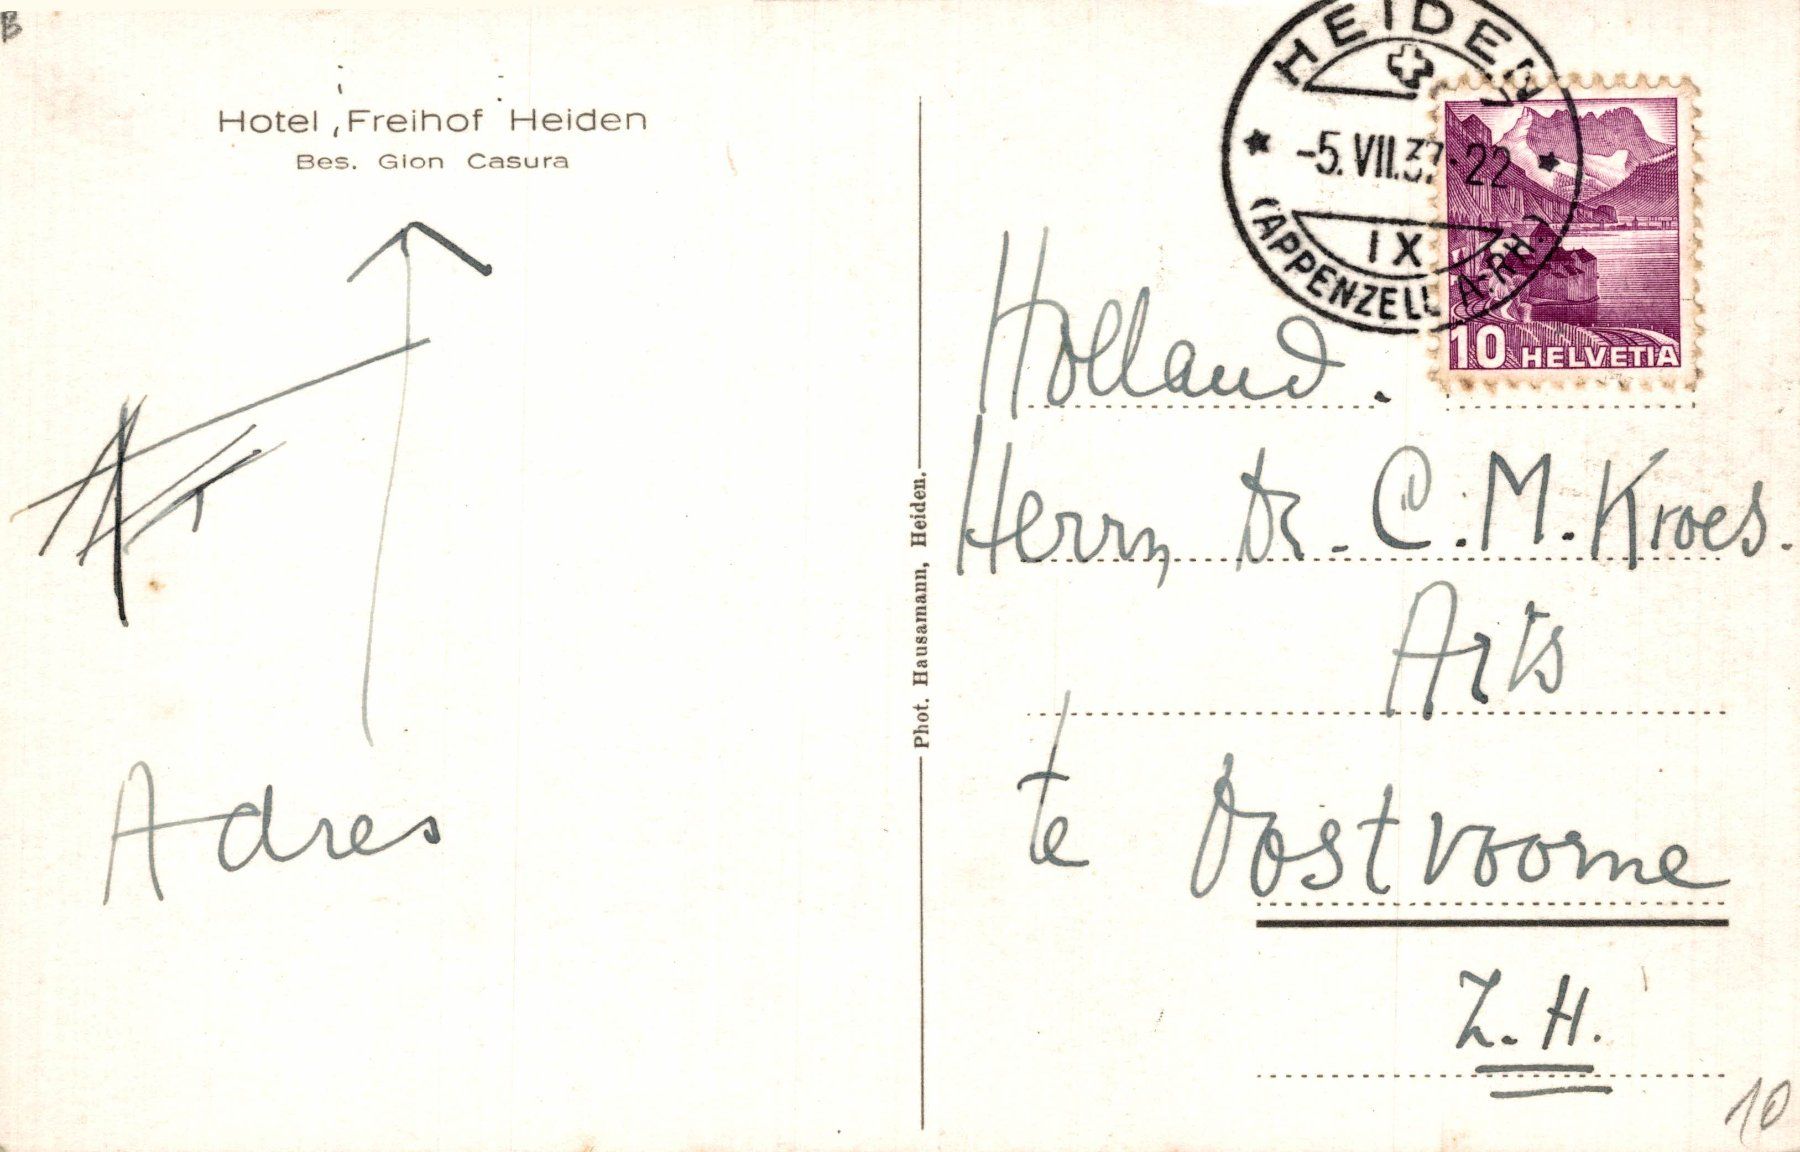 B
Hotel Freihof Heiden
Bes. Gion Casura
Adres
Phot. Hausamann, Heiden.
HEIDEN
-5.VII.37.22
IX
(APPENZELL A.RH.)
10 HELVETIA
Holland.
Herrn Dr. C. M. Kroes.
Arts
te Oostvoorne
Z.H.
10